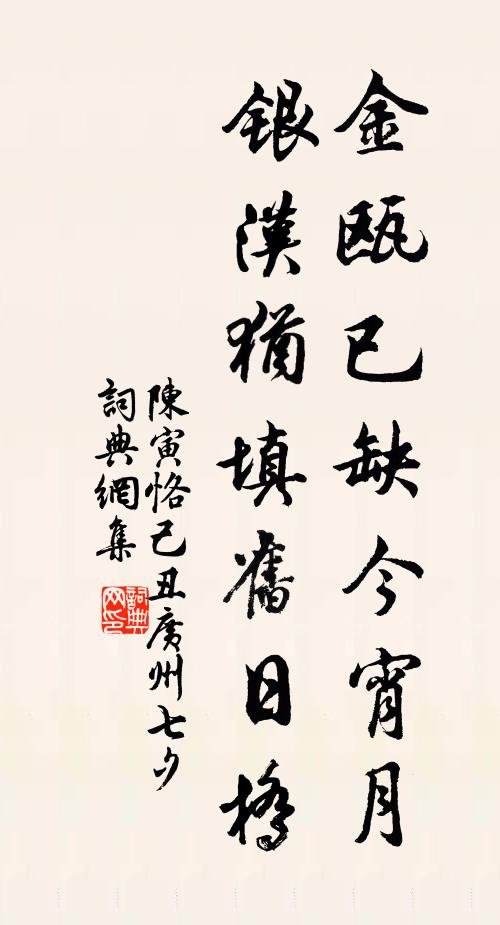 金甌已缺今宵月
銀漢猶填舊日橋
陳寅恪己丑廣州七夕
詞典網集
詞典
网印